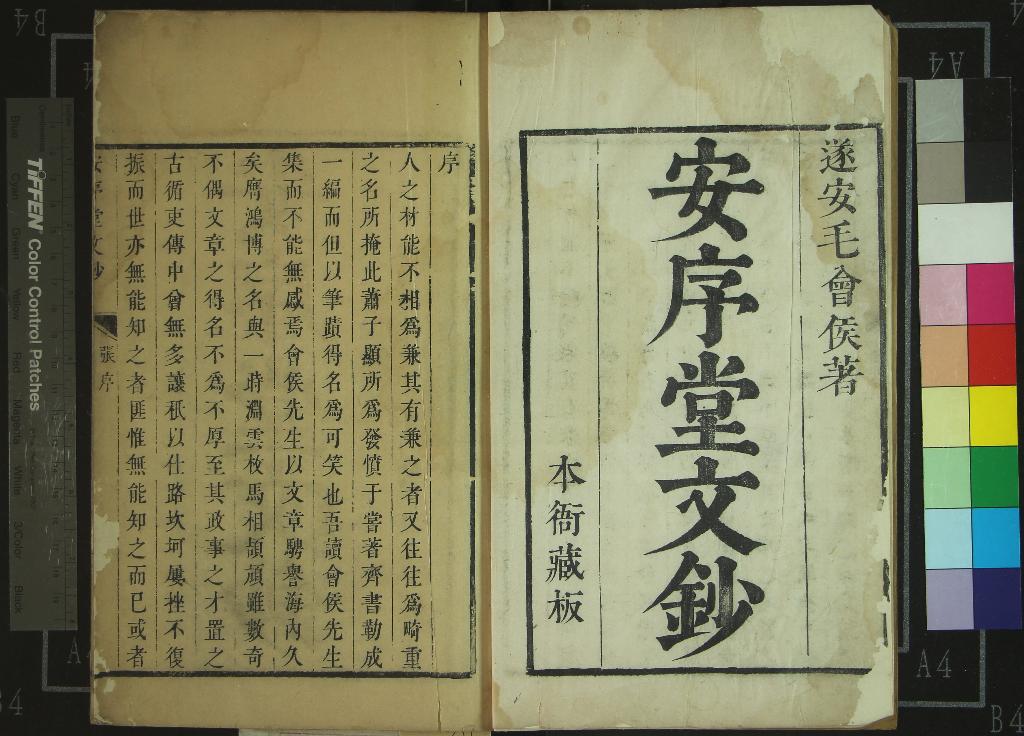 遂安毛會侯著
安序堂文鈔
本衙藏板
序
人之材能不相爲兼其有兼之者又往往爲畸重
之名所掩此蕭子顯所爲發憤于嘗著齊書勒成
一編而但以筆蹟得名爲可笑也吾讀會侯先生
集而不能無感焉會侯先生以文章騁譽海內久
矣膺鴻博之名與一時淵雲枚馬相頡頏雖數奇
不偶文章之得名不爲不厚至其政事之才置之
古循吏傳中會無多讓秖以仕路坎坷屢挫不復
振而世亦無能知之者匪惟無能知之而已或者
安序堂文鈔
張序
TIFFEN Color Control Patches
Blue
Cyan
Green
Yellow
Red
Magenta
White
3/Color
Black
A4
B4
A4
A4
B4